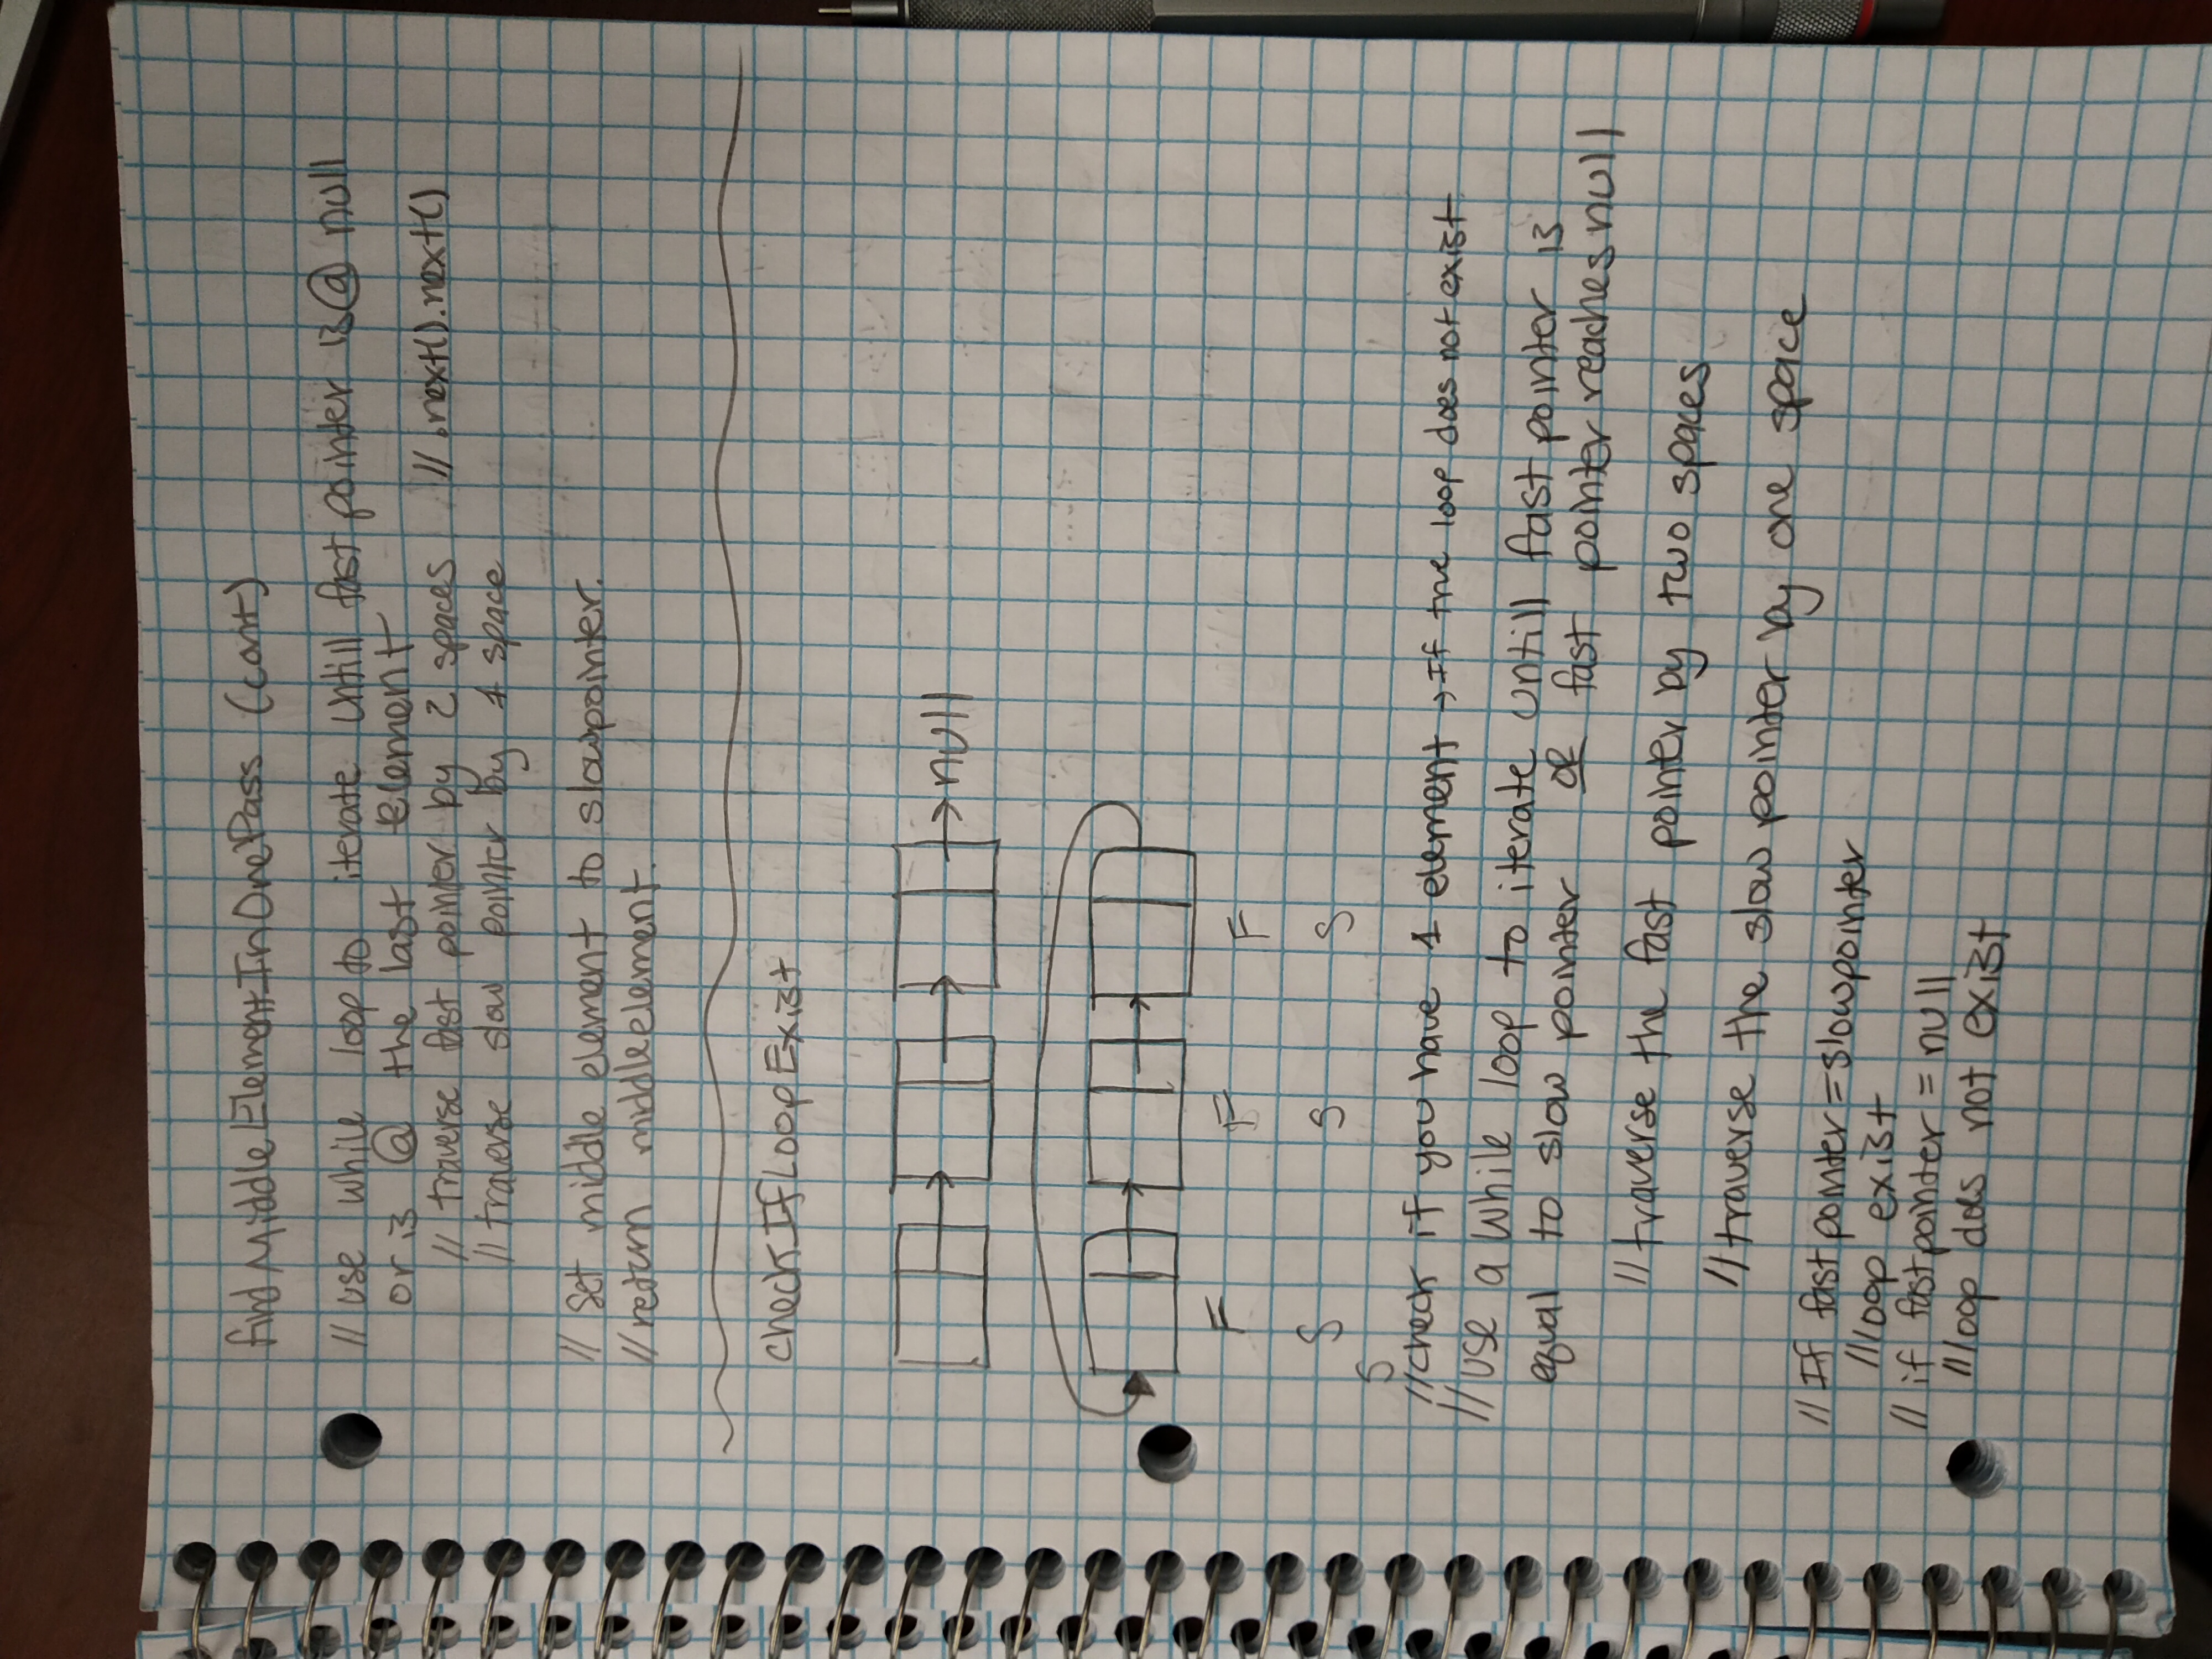 findMiddleElementInOnePass (cont)
// use while loop to iterate untill fast pointer is @ null
or is @ the last element
// traverse fast pointer by 2 spaces // .next().next()
// traverse slow pointer by 1 space
// Set middle element to slowpointer.
// return middleelement.
checkIfLoopExist
null
F F F
S S S
S
// check if you have 1 element → If true loop does not exist.
// use a while loop to iterate untill fast pointer is
equal to slow pointer OR fast pointer reaches null
// traverse the fast pointer by two spaces
// traverse the slow pointer by one space
// If fastpointer = slowpointer
// loop exist
// if fastpointer = null
// loop does not exist